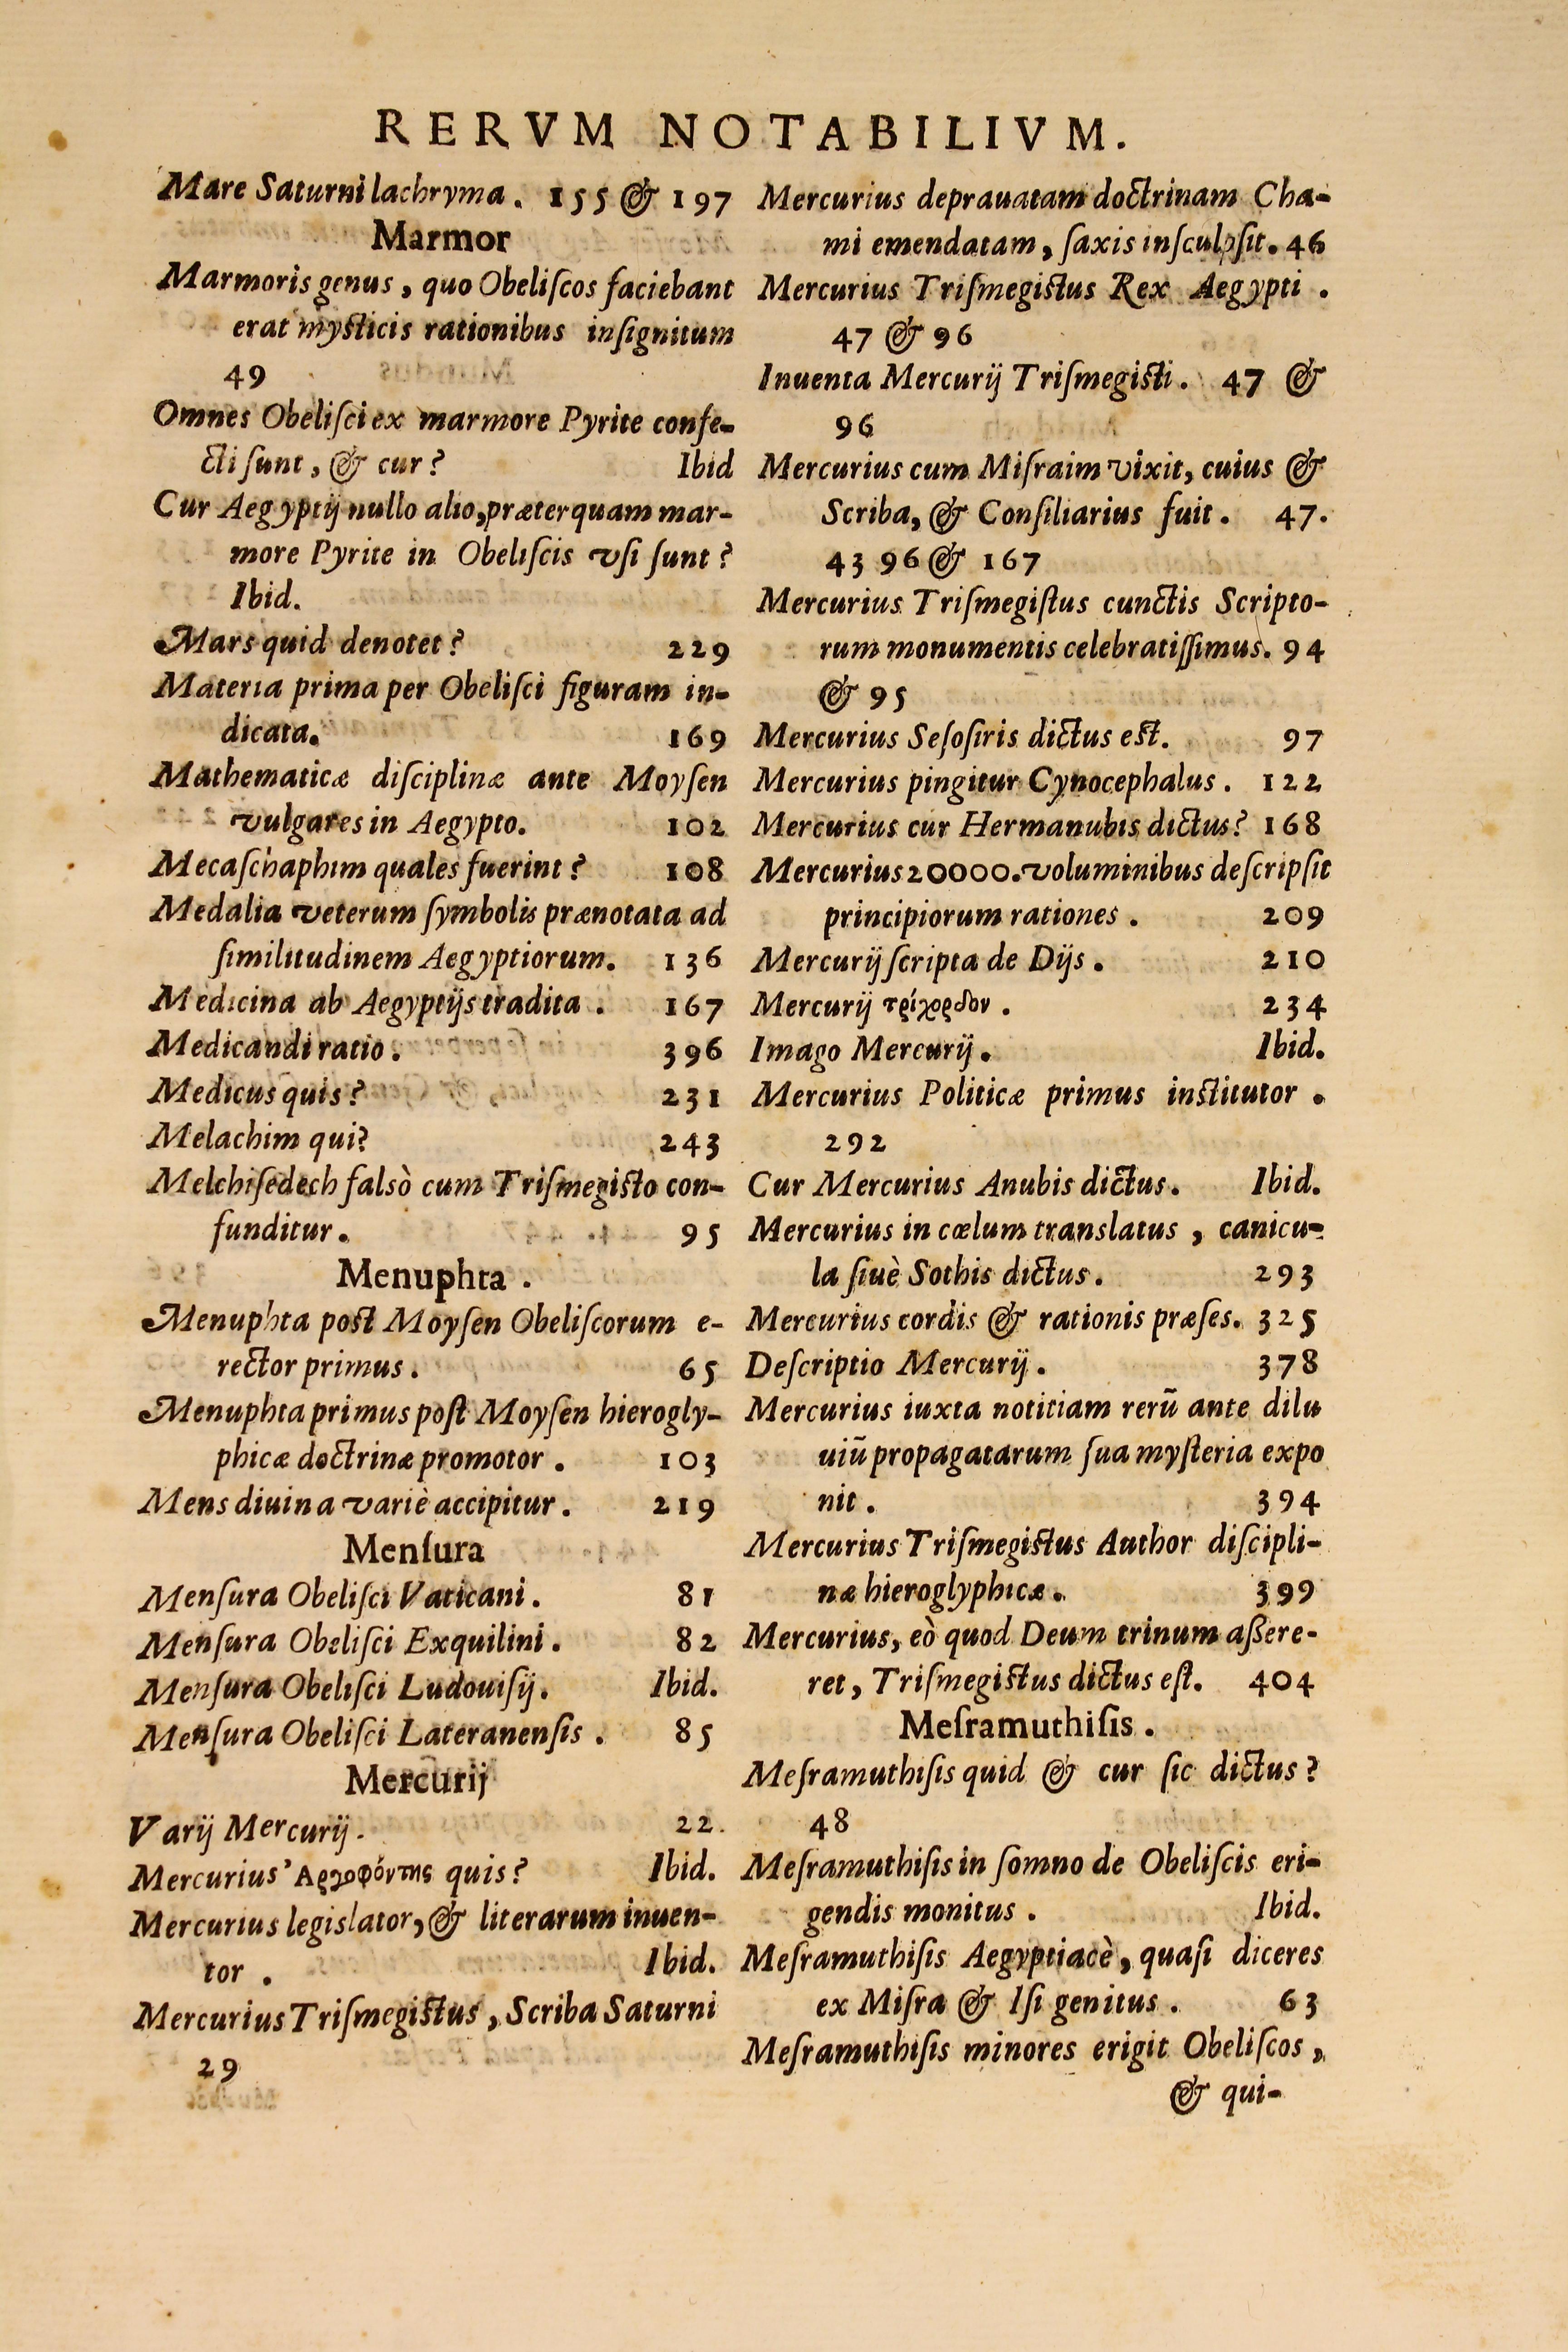 RERVM NOTABILIVM.
Mare Saturni lachryma. 155 & 197
Marmor
Marmoris genus, quo Obeliſcos faciebant
erat myſticis rationibus inſignitum
49
Omnes Obeliſci ex marmore Pyrite confe-
cti ſunt, & cur? Ibid
Cur Aegyptij nullo alio, præterquam mar-
more Pyrite in Obeliſcis vſi ſunt?
Ibid.
Mars quid denotet? 229
Materia prima per Obeliſci figuram in-
dicata. 169
Mathematicæ diſciplinæ ante Moyſen
vulgares in Aegypto. 102
Mecaſchaphim quales fuerint? 108
Medalia veterum ſymbolis prænotata ad
ſimilitudinem Aegyptiorum. 136
Medicina ab Aegyptijs tradita. 167
Medicandi ratio. 396
Medicus quis? 231
Melachim qui? 243
Melchiſedech falsò cum Triſmegiſto con-
funditur. 95
Menuphta.
Menuphta poſt Moyſen Obeliſcorum e-
rector primus. 65
Menuphta primus poſt Moyſen hierogly-
phicæ doctrinæ promotor. 103
Mens diuina variè accipitur. 219
Menſura
Menſura Obeliſci Vaticani. 81
Menſura Obeliſci Exquilini. 82
Menſura Obeliſci Ludouiſij. Ibid.
Menſura Obeliſci Lateranenſis. 85
Mercurij
Varij Mercurij. 22.
Mercurius Ἀργοφόντης quis? Ibid.
Mercurius legislator, & literarum inuen-
tor. Ibid.
Mercurius Triſmegiſtus, Scriba Saturni
29
Mercurius deprauatam doctrinam Cha-
mi emendatam, ſaxis inſculpſit. 46
Mercurius Triſmegiſtus Rex Aegypti.
47 & 96
Inuenta Mercurij Triſmegiſti. 47 &
96
Mercurius cum Miſraim vixit, cuius &
Scriba, & Conſiliarius fuit. 47.
43 96 & 167
Mercurius Triſmegiſtus cunctis Scripto-
rum monumentis celebratiſſimus. 94
& 95
Mercurius Seſoſiris dictus eſt. 97
Mercurius pingitur Cynocephalus. 122
Mercurius cur Hermanubis dictus? 168
Mercurius 20000. voluminibus deſcripſit
principiorum rationes. 209
Mercurij ſcripta de Dijs. 210
Mercurij τρίχορδον. 234
Imago Mercurij. Ibid.
Mercurius Politicæ primus inſtitutor.
292
Cur Mercurius Anubis dictus. Ibid.
Mercurius in cœlum translatus, canicu-
la ſiuè Sothis dictus. 293
Mercurius cordis & rationis præſes. 325
Deſcriptio Mercurij. 378
Mercurius iuxta notitiam rerū ante dilu
uiū propagatarum ſua myſteria expo
nit. 394
Mercurius Triſmegiſtus Author diſcipli-
næ hieroglyphicæ. 399
Mercurius, eò quod Deum trinum aßere-
ret, Triſmegiſtus dictus eſt. 404
Meſramuthiſis.
Meſramuthiſis quid & cur ſic dictus?
48
Meſramuthiſis in ſomno de Obeliſcis eri-
gendis monitus. Ibid.
Meſramuthiſis Aegyptiacè, quaſi diceres
ex Miſra & Iſi genitus. 63
Meſramuthiſis minores erigit Obeliſcos,
& qui-